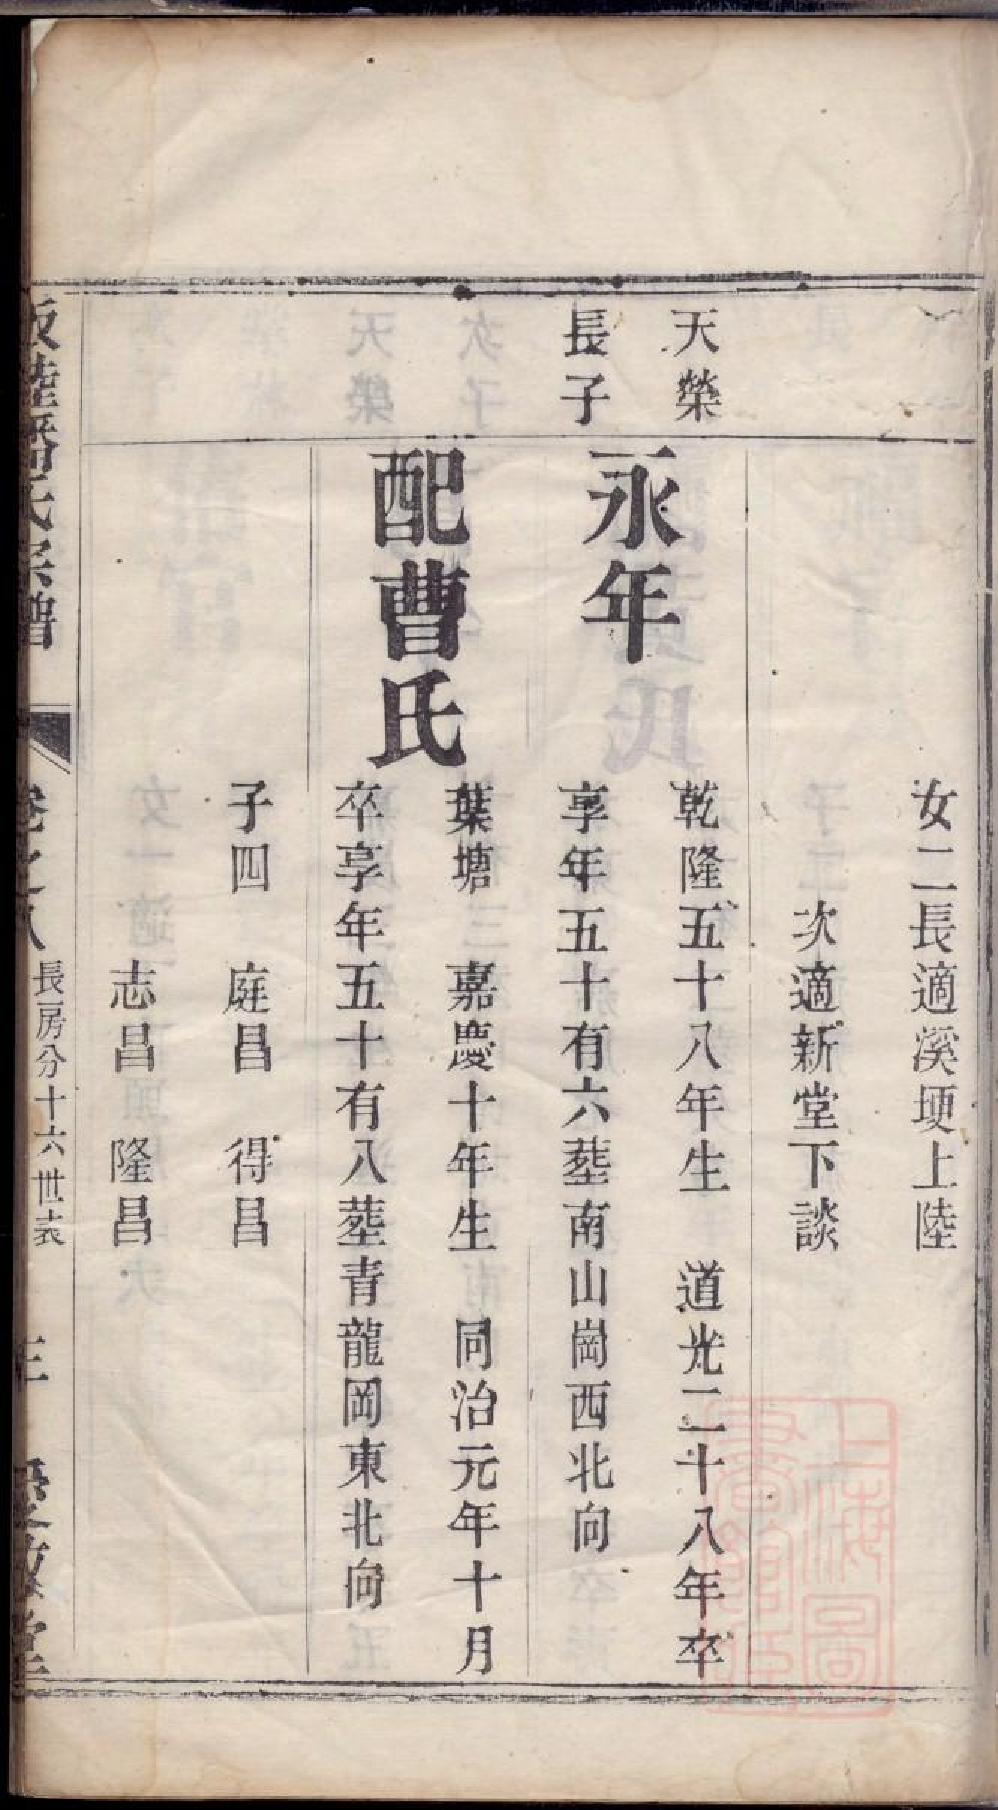 女二長適溪埂上陸
次適新堂下談
天榮
長子
永年
乾隆五十八年生 道光二十八年卒
享年五十有六塟南山崗西北向
配曹氏
葉塘 嘉慶十年生 同治元年十月
卒享年五十有八塟青龍岡東北向
子四 庭昌 得昌
志昌 隆昌
氏宗譜
卷之八 長房分十六世表
上海圖書館藏